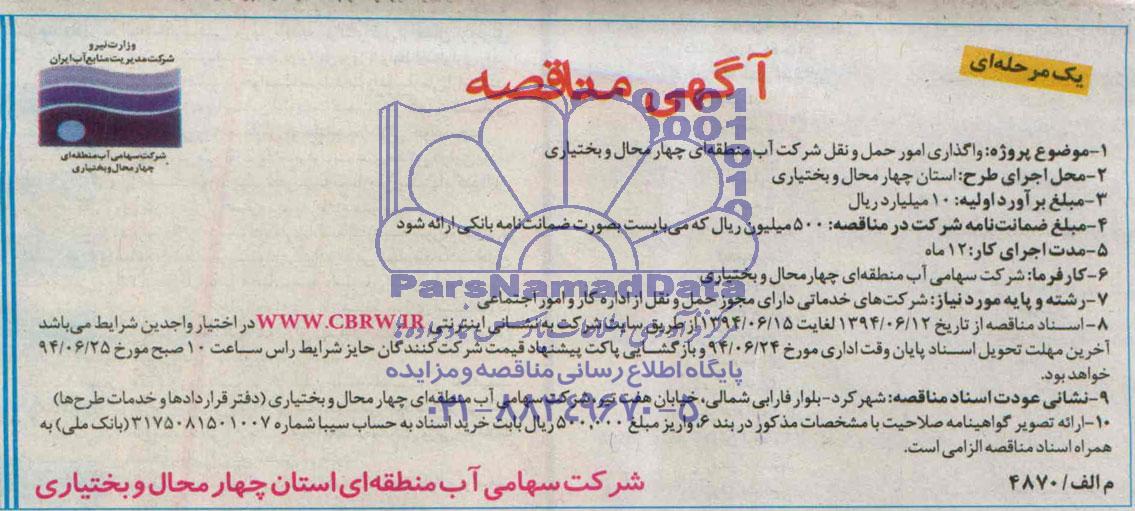 وزارت نیرو
شرکت مدیریت منابع آب ایران
شرکت سهامی آب منطقه‌ای
چهارمحال وبختیاری
یک مرحله‌ای
آگهی مناقصه
۱-موضوع پروژه: واگذاری امور حمل و نقل شرکت آب منطقه‌ای چهار محال و بختیاری
۲-محل اجرای طرح: استان چهار محال و بختیاری
۳-مبلغ برآورد اولیه: ۱۰ میلیارد ریال
۴-مبلغ ضمانت‌نامه شرکت در مناقصه: ۵۰۰ میلیون ریال که می‌بایست بصورت ضمانت‌نامه بانکی ارائه شود
۵-مدت اجرای کار: ۱۲ ماه
۶-کارفرما: شرکت سهامی آب منطقه‌ای چهار محال و بختیاری
ParsNamadData
۷-رشته و پایه مورد نیاز: شرکت‌های خدماتی دارای مجوز حمل و نقل از اداره کار و امور اجتماعی
۸-اسناد مناقصه از تاریخ ۱۳۹۴/۰۶/۱۲ لغایت ۱۳۹۴/۰۶/۱۵ از طریق سایت شرکت به نشانی اینترنتی WWW.CBRW.IR در اختیار واجدین شرایط می‌باشد
آخرین مهلت تحویل اسناد پایان وقت اداری مورخ ۹۴/۰۶/۲۴ و بازگشایی پاکت پیشنهاد قیمت شرکت کنندگان حایز شرایط راس ساعت ۱۰ صبح مورخ ۹۴/۰۶/۲۵
خواهد بود.
پایگاه اطلاع رسانی مناقصه و مزایده
۹-نشانی عودت اسناد مناقصه: شهرکرد-بلوار فارابی شمالی، خیابان هفت تیر، شرکت سهامی آب منطقه‌ای چهار محال و بختیاری (دفتر قراردادها و خدمات طرح‌ها)
۰۲۱-۸۸۳۴۹۶۷۰-۵
۱۰-ارائه تصویر گواهینامه صلاحیت با مشخصات مذکور در بند ۶، واریز مبلغ ۵۰۰،۰۰۰ ریال بابت خرید اسناد به حساب سیبا شماره ۳۱۷۵۰۸۱۵۰۱۰۰۷ (بانک ملی) به
همراه اسناد مناقصه الزامی است.
م الف/ ۴۸۷۰
شرکت سهامی آب منطقه‌ای استان چهار محال و بختیاری